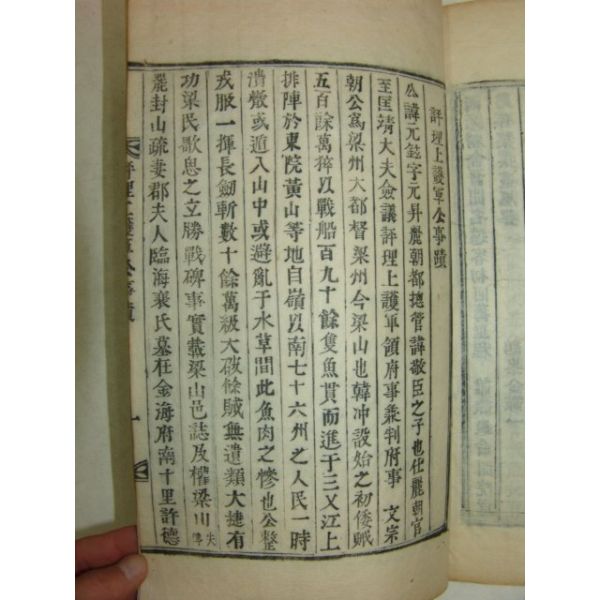 評理上護軍公事蹟
公諱元鉉字元昇麗朝都摠管諱敬臣之子也仕麗朝官
至匡靖大夫僉議評理上護軍領府事兼判府事 文宗
朝公爲梁州大都督梁州今梁山也韓冲設始之初倭賊
五百餘萬猝以戰船百九十餘隻魚貫而進于三叉江上
排陣於東院黃山等地自嶺以南七十六州之人民一時
潰散或遁入山中或避亂于水草間此魚肉之慘也公整
戎服一揮長劒斬數十餘萬級大破餘賊無遺類大捷有
功梁民歌思之立勝戰碑事實載梁山邑誌及權梁川
罷封山疏妻郡夫人臨海裵氏墓在金海府南十里許德
評理上護軍公事蹟 一